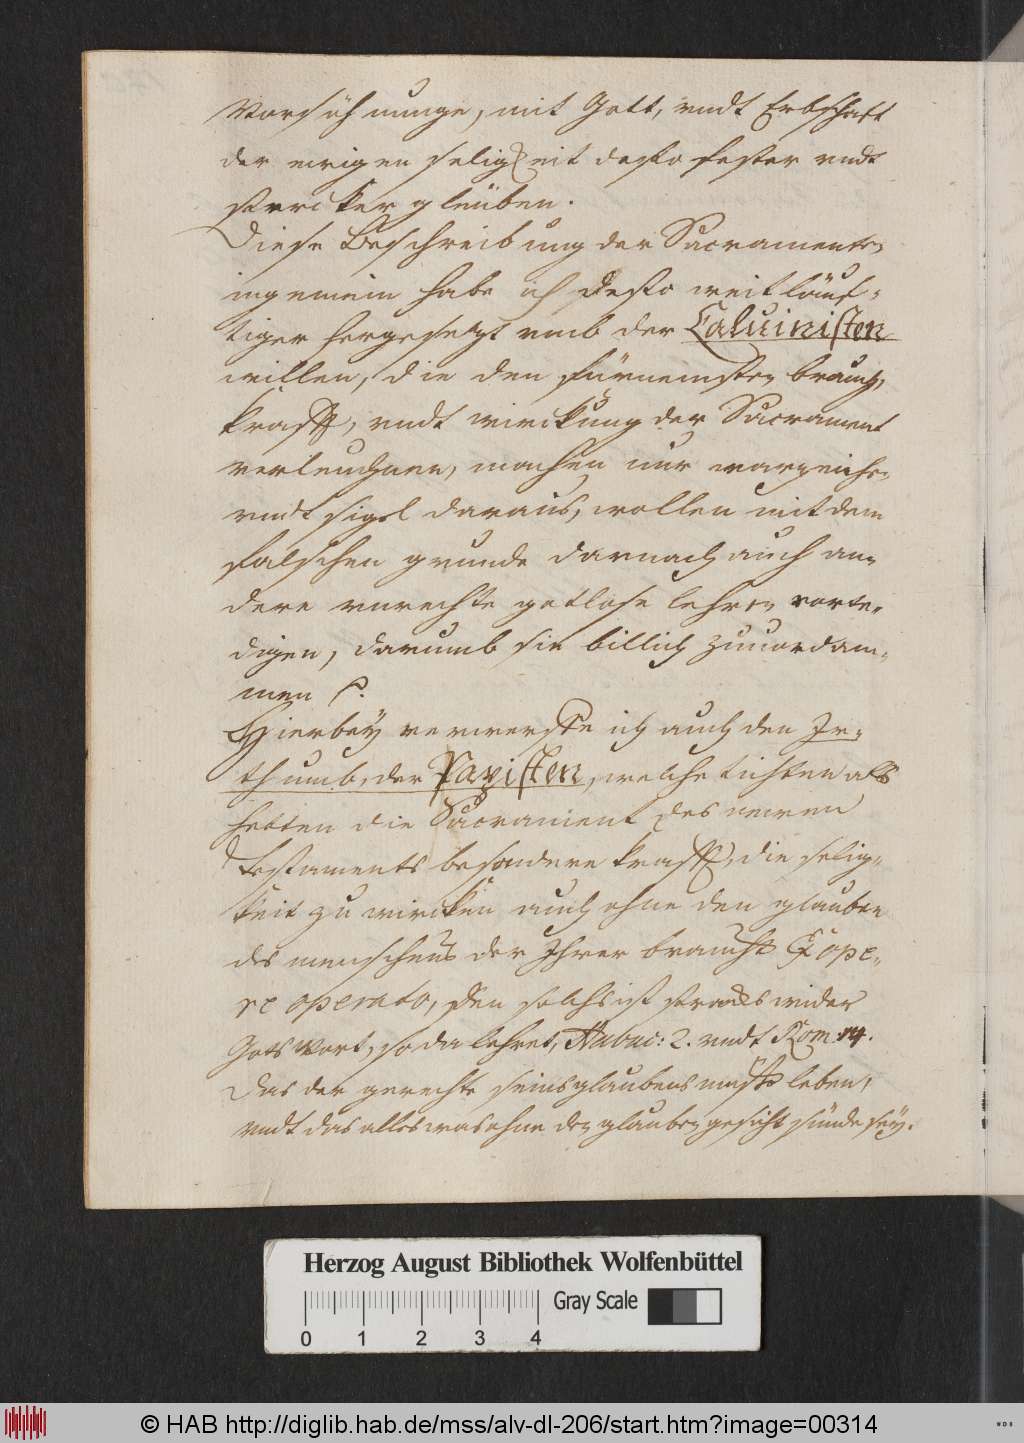 Vorsöhnunge, mit Gott, vndt Erbschafft
der ewigen seligkeit desto fester vndt
stercker gleüben.
Diese Beschreibung der Sacramente,
ingemein habe ich desto weitläuf-
tiger hergesetzt vmb der Caluinisten
willen, die den fürnemsten brauch,
krafft, vndt wirckung der Sacrament
verleuchnen, machen nur warzeichen
vndt sigel daraus, wollen mit dem
falschen grunde darnach auch an-
dere vnrechte gotlose lehren vorte-
digen, darumb sie billich zuuordam-
men
Hierbey verwerffe ich auch den Ir-
thumb, der Papisten, welche tichten als
hetten die Sacrament des newen
Testaments besondere krafft, die selig-
keit zu wircken auch ohne den glauben
des menschens der Ihrer braucht Ex ope-
re operato, den solchs ist stracks wider
Gots Wort, so da lehret, Habac: 2. vndt Rom: 14.
Das der gerechte seins glaubens muste leben,
vndt das alles was ohne den glauben geschicht sünde sey.
Herzog August Bibliothek Wolfenbüttel
0 1 2 3 4
Gray Scale
© HAB http://diglib.hab.de/mss/alv-dl-206/start.htm?image=00314